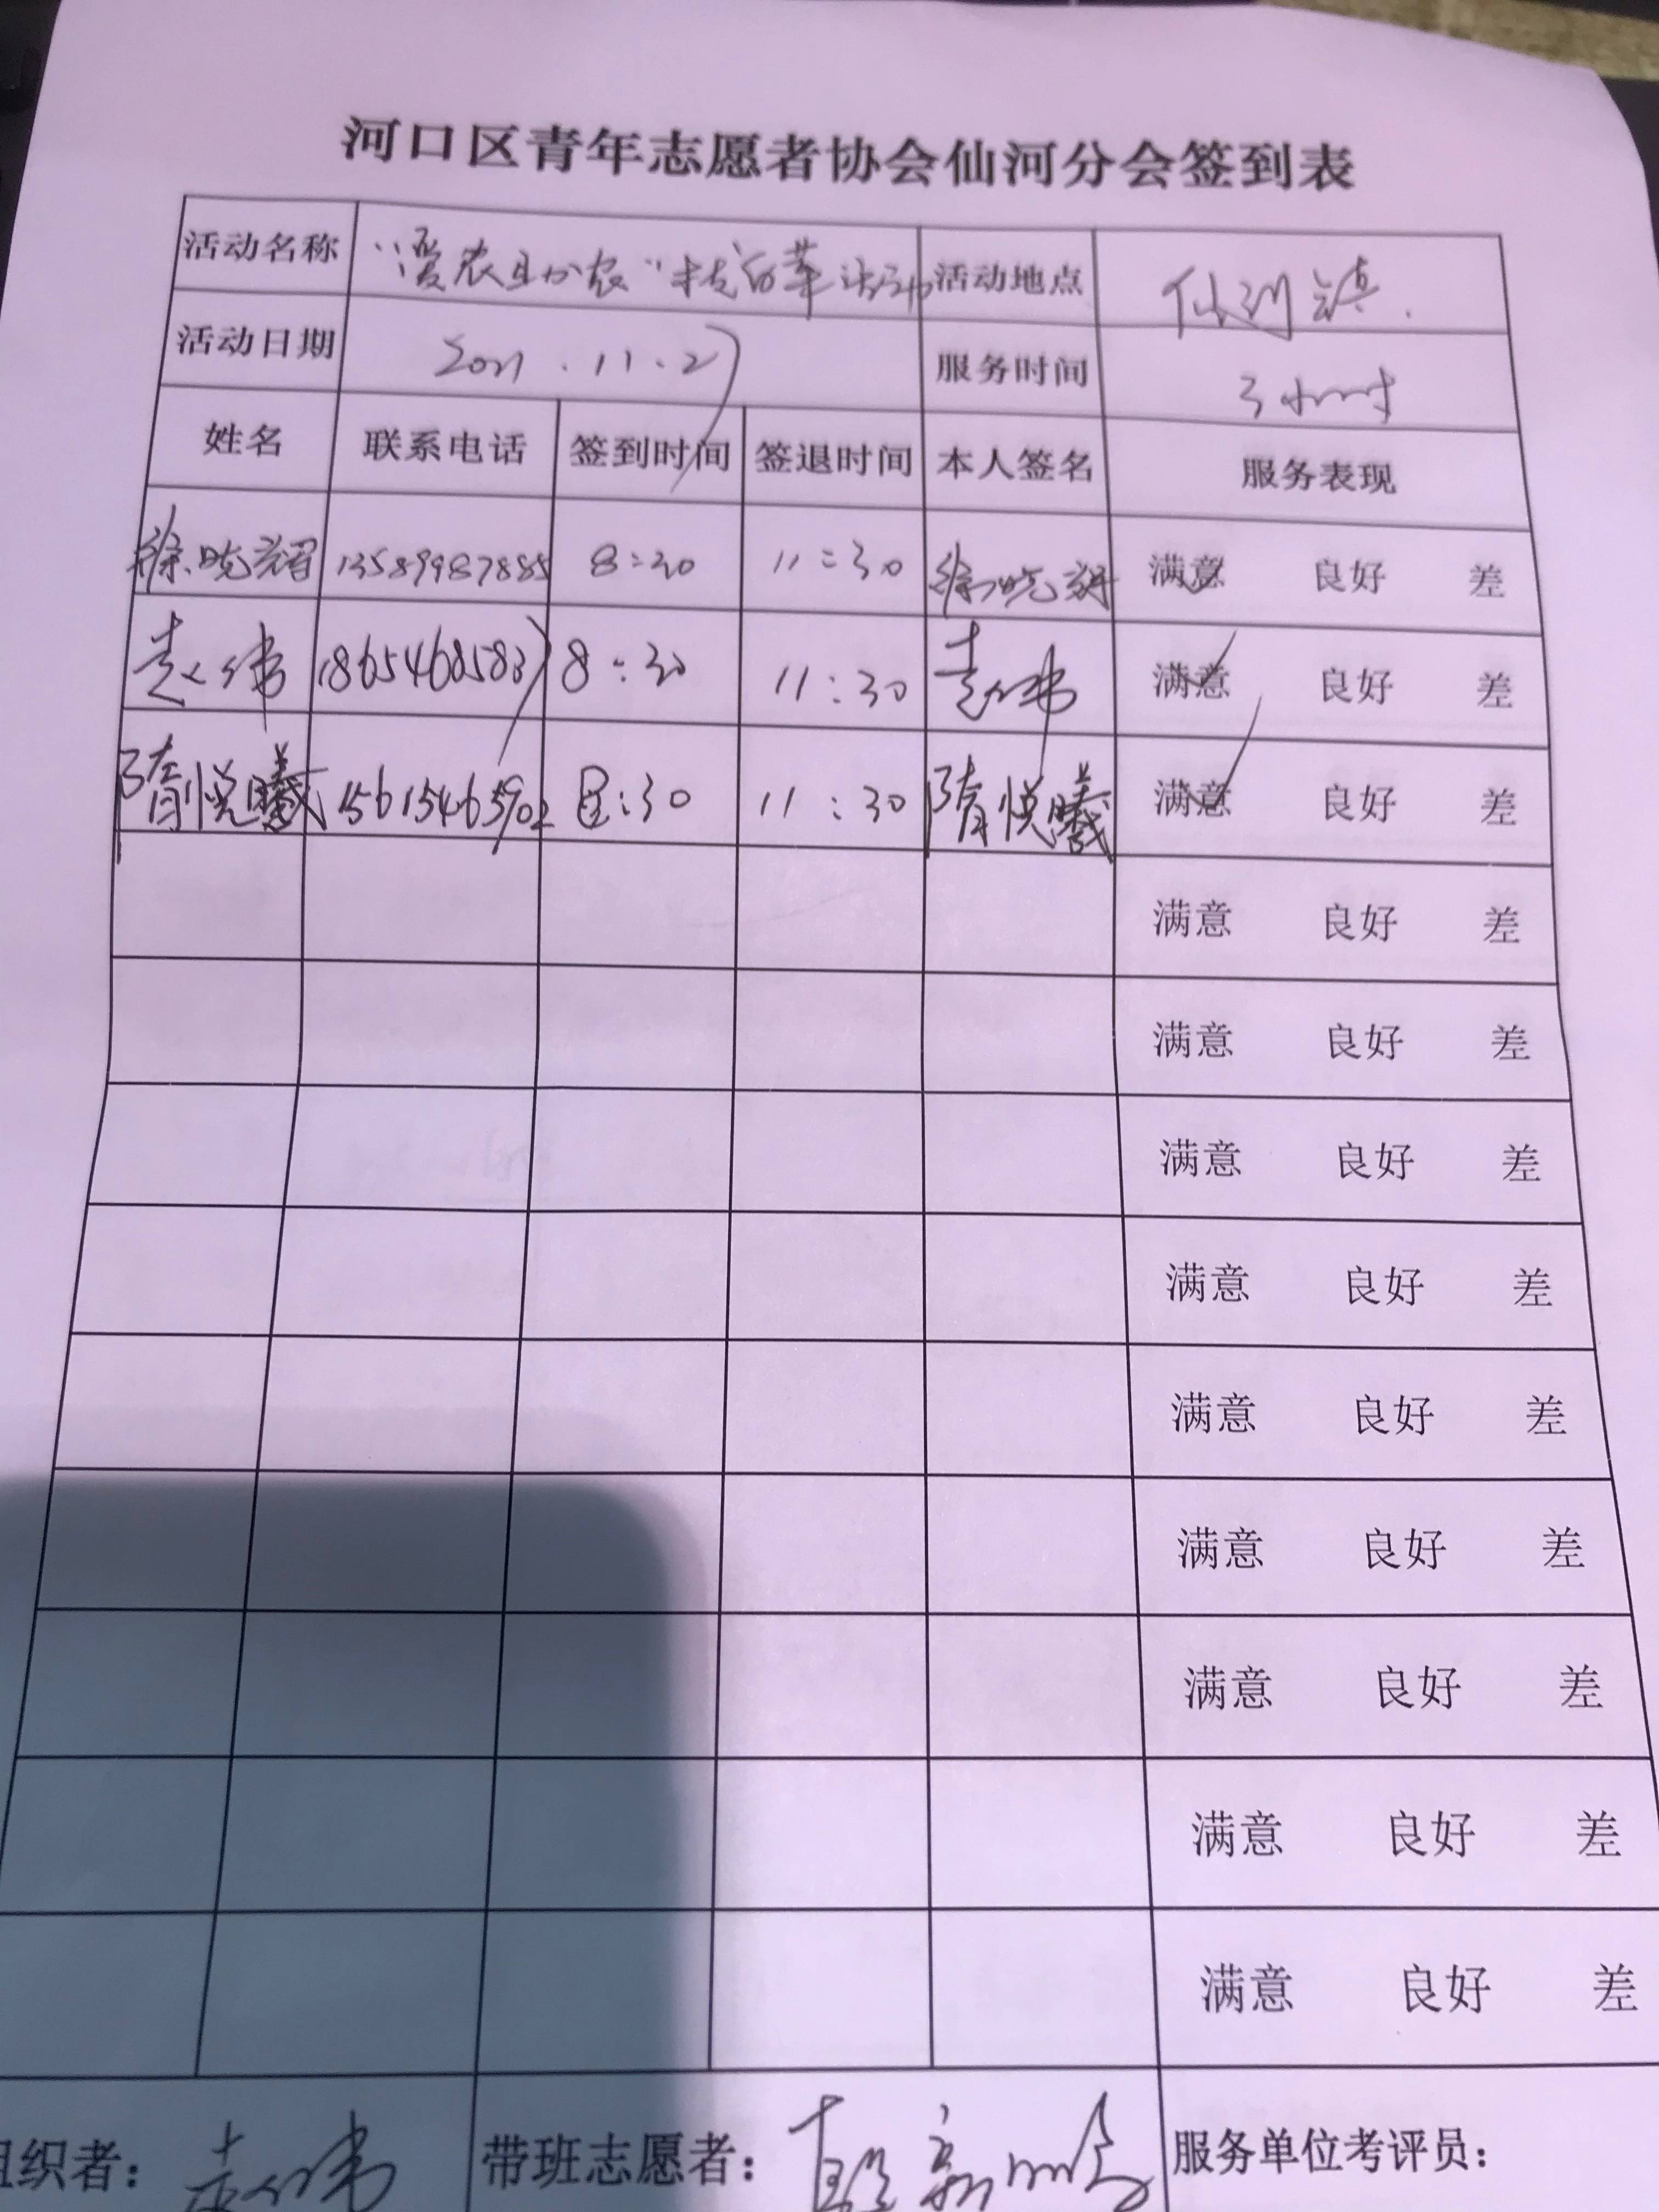 河口区青年志愿者协会仙河分会签到表
活动名称 “爱农且办农” 活动 活动地点 仙河镇.
活动日期 2021.11.27 服务时间 3小时
姓名 联系电话 签到时间 签退时间 本人签名 服务表现
徐晓辉 13589987885 8:30 11:30 徐晓辉 满意 良好 差
袁伟 18654685837 8:30 11:30 袁伟 满意 良好 差
隋悦曦 15615465902 8:30 11:30 隋悦曦 满意 良好 差
满意 良好 差
满意 良好 差
满意 良好 差
满意 良好 差
满意 良好 差
满意 良好 差
满意 良好 差
满意 良好 差
满意 良好 差
组织者: 袁伟 带班志愿者: 服务单位考评员: